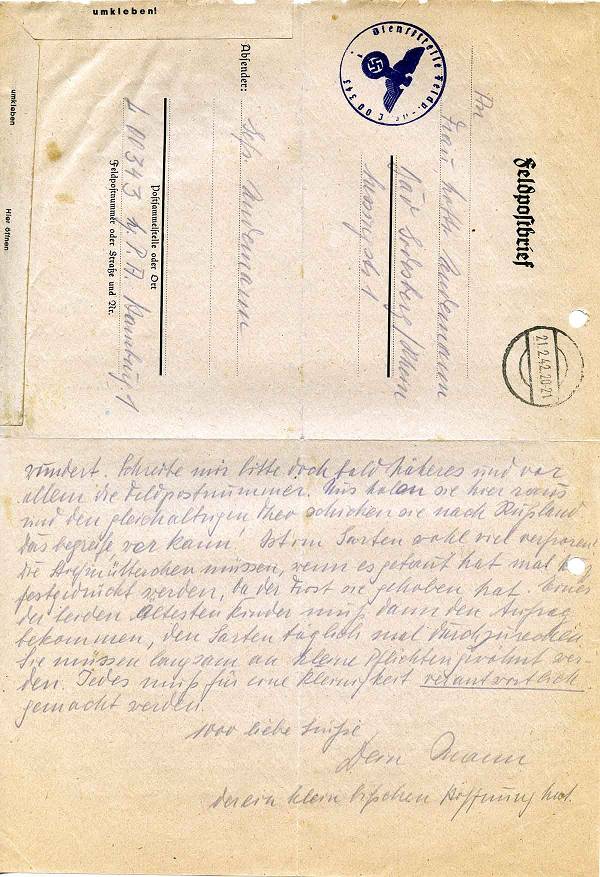 umkleben!
umkleben
Hier öffnen
Feldpostbrief
21.2.42.20-21
Dienststelle Feldp.-Nr. L 00343
An
Frau
Bad Godesberg/Rhein
1
Absender:
Postsammelstelle oder Ort
L 00343 Hamburg 1
Feldpostnummer oder Straße und Nr.
wundert. Schreibe mir bitte doch bald näheres und vor
allem die Feldpostnummer. Uns holen sie hier raus
und den gleichaltrigen Theo schicken sie nach Rußland
Das begreife wer kann! Ist im Garten wohl viel erfroren?
Die Stiefmütterchen müssen, wenn es getaut hat mal
festgedrückt werden, da der Frost sie gehoben hat. Eines
der beiden ältesten Kinder muß dann den Auftrag
bekommen, den Garten täglich mal durchzusehen
Sie müssen langsam an kleine Pflichten gewöhnt wer-
den. Jedes muß für eine Kleinigkeit verantwortlich
gemacht werden.
1000 liebe Grüße
Dein Mann
der ein klein bißchen Hoffnung hat.